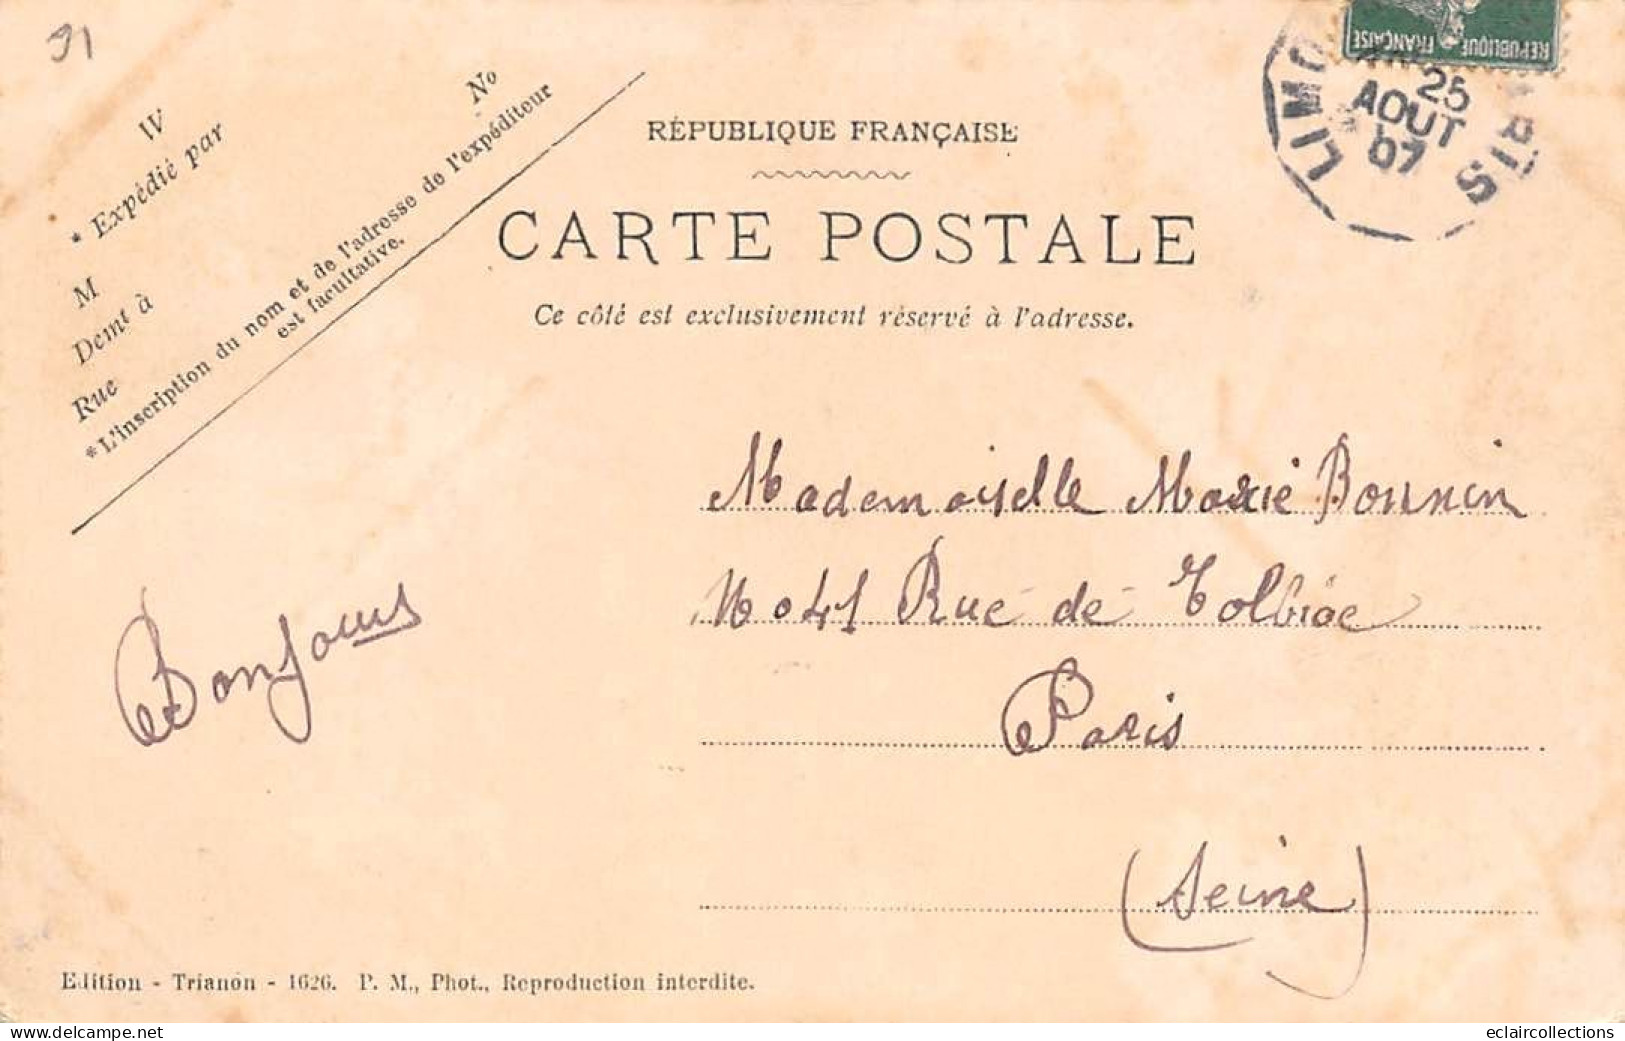 91
W
N°
* Expédié par
M
Demt à
Rue
*L'inscription du nom et de l'adresse de l'expéditeur
est facultative.
RÉPUBLIQUE FRANÇAISE
CARTE POSTALE
Ce côté est exclusivement réservé à l'adresse.
REPUBLIQUE FRANÇAISE
25
AOUT
07
Mademoiselle Marie Bonnin
No 41 Rue de Tolbiac
Paris
(Seine)
Bonjours
Edition - Trianon - 1626. P. M., Phot., Reproduction interdite.
www.delcampe.net
eclaircollections